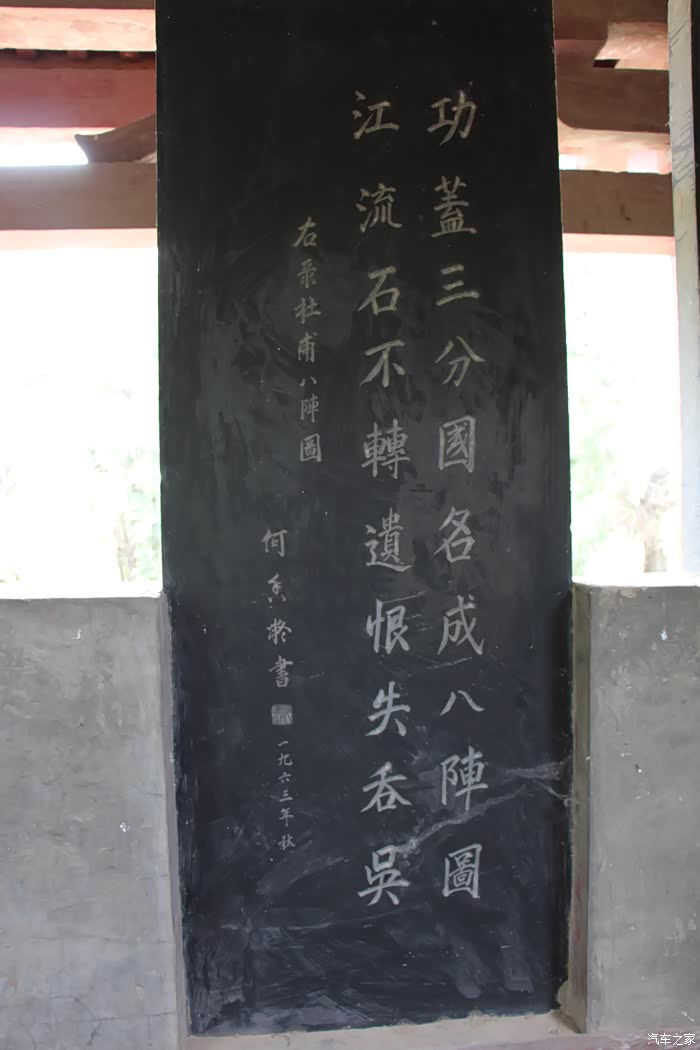 功蓋三分國名成八陣圖
江流石不轉遺恨失吞吳
右录杜甫八陣圖
何香凝書
一九六三年秋
汽车之家